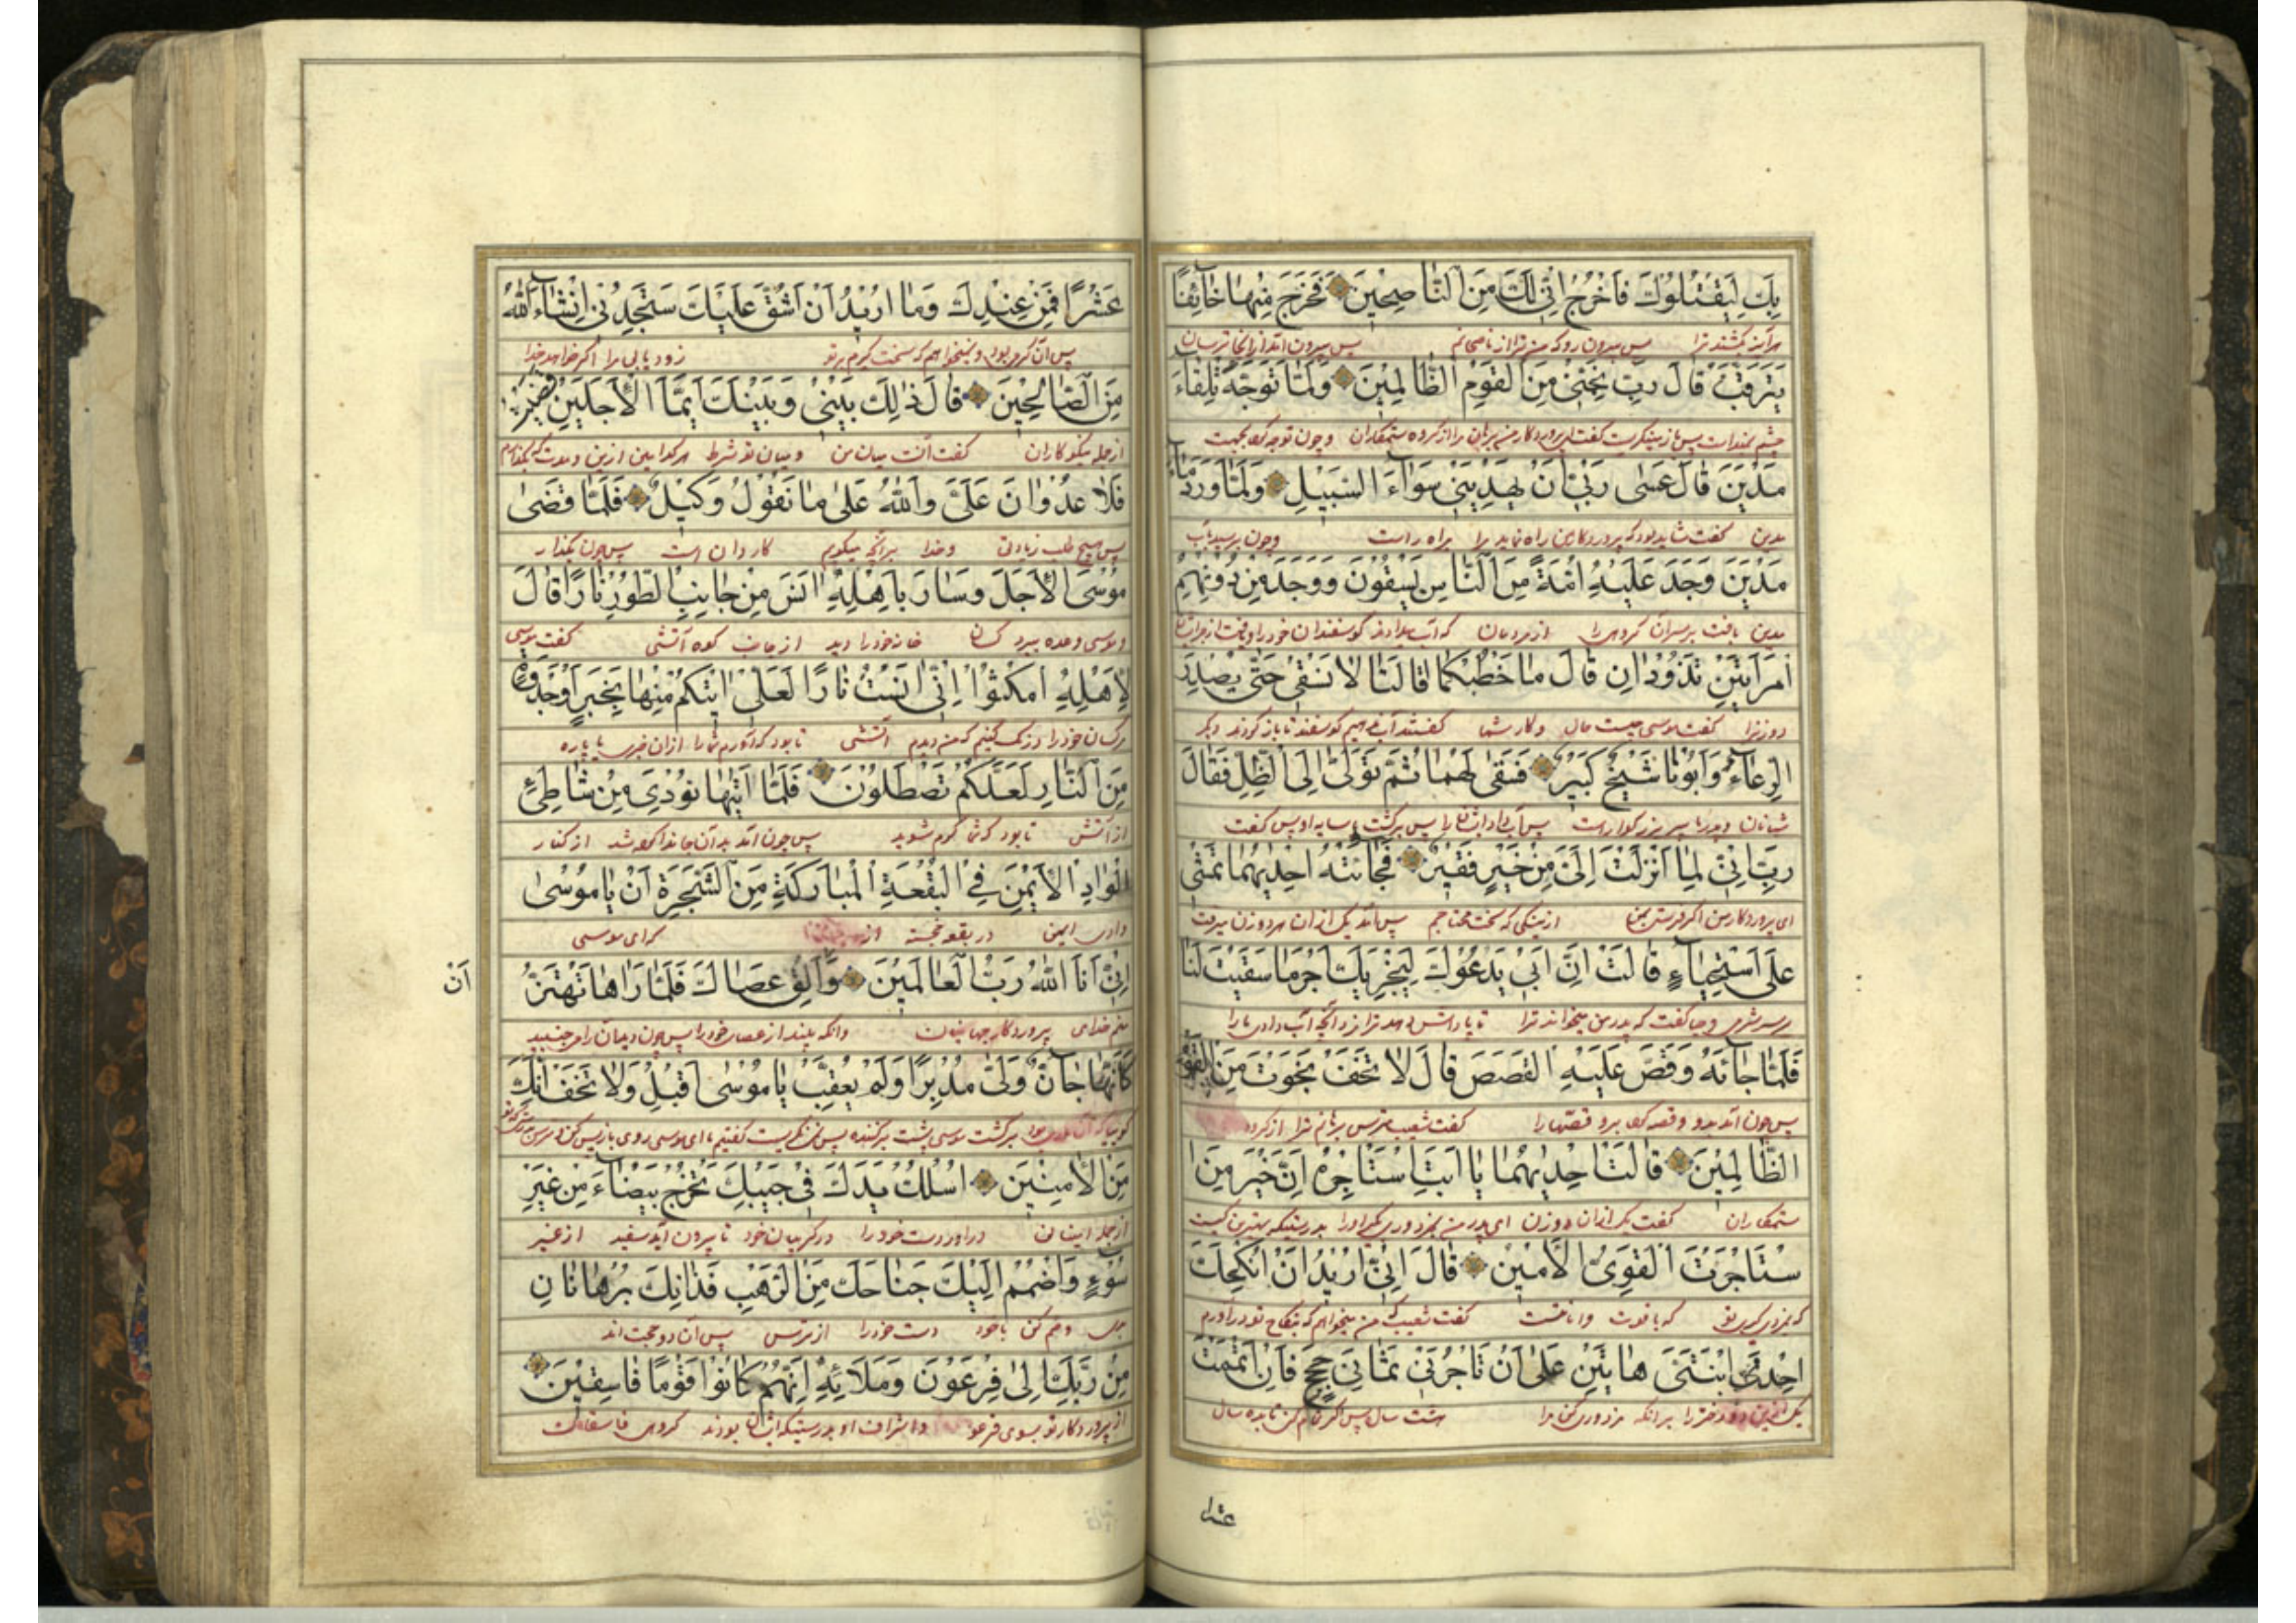 بِكَ لِيَقْتُلُوكَ فَاخْرُجْ اِنّى لَكَ مِنَ النَّاصِحِينَ فَخَرَجَ مِنْهَا خَائِفًا
پس بیرون رو که من ترا از ناصحانم پس بیرون آمد از آنجا ترسان
يَتَرَقَّبُ قَالَ رَبِّ نَجِّنِى مِنَ الْقَوْمِ الظَّالِمِينَ وَلَمَّا تَوَجَّهَ تِلْقَاءَ
گفت ای پروردگار من برهان مرا از گروه ستمکاران و چون توجه کرد بجهت
مَدْيَنَ قَالَ عَسَى رَبِّى اَنْ يَهْدِيَنِى سَوَاءَ السَّبِيلِ وَلَمَّا وَرَدَ مَاءَ
مدین گفت شاید بود که پروردگار من راه نماید مرا براه راست و چون برسید بآب
مَدْيَنَ وَجَدَ عَلَيْهِ اُمَّةً مِنَ النَّاسِ يَسْقُونَ وَوَجَدَ مِنْ دُونِهِمُ
مدین یافت بر سر آن گروهی را از مردمان که آب میدادند گوسفندان خود را
امْرَأَتَيْنِ تَذُودَانِ قَالَ مَا خَطْبُكُمَا قَالَتَا لَا نَسْقِى حَتَّى يُصْدِرَ
دو زنرا گفت موسی چیست حال و کار شما گفتند آب ندهیم گوسفند تا باز گردند
الرِّعَاءُ وَاَبُونَا شَيْخٌ كَبِيرٌ فَسَقَى لَهُمَا ثُمَّ تَوَلَّى اِلَى الظِّلِّ فَقَالَ
شبانان و پدر ما پیر بزرگوار است پس آب داد ایشانرا پس برگشت بسایه او پس گفت
رَبِّ اِنِّى لِمَا اَنْزَلْتَ اِلَىَّ مِنْ خَيْرٍ فَقِيرٌ فَجَائَتْهُ اِحْدٰيهُمَا تَمْشِى
ای پروردگار من از نیکی که سخت محتاجم پس آمد یکی از آن هر دو زن میرفت
عَلَى اسْتِحْيَاءٍ قَالَتْ اِنَّ اَبِى يَدْعُوكَ لِيَجْزِيَكَ اَجْرَ مَا سَقَيْتَ لَنَا
گفت که پدر من میخواند ترا تا پاداش دهد ترا مزد آنچه آب دادی ما را
فَلَمَّا جَائَهُ وَقَصَّ عَلَيْهِ الْقَصَصَ قَالَ لَا تَخَفْ نَجَوْتَ مِنَ الْقَوْمِ
پس چون آمد بدو و قصه کرد برو قصها را گفت شعیب مترس برهانم ترا از گروه
الظَّالِمِينَ قَالَتْ اِحْدٰيهُمَا يَا اَبَتِ اسْتَأْجِرْهُ اِنَّ خَيْرَ مَنِ ا
ستمکاران گفت یکی از آن دو زن ای پدر من بمزدوری گیر او را بدرستیکه بهترین کسیست
سْتَأْجَرْتَ الْقَوِىُّ الْاَمِينُ قَالَ اِنِّى اُرِيدُ اَنْ اُنْكِحَكَ
که با قوت و امانتست گفت شعیب که من میخواهم که بنکاح تو در آورم
اِحْدَى ابْنَتَىَّ هَاتَيْنِ عَلَى اَنْ تَأْجُرَنِى ثَمَانِىَ حِجَجٍ فَاِنْ اَتْمَمْتَ
دختر را بر آنکه مزدوری کنی مرا هشت سال پس اگر تمام کنی تا ده سال
عشرا
عَشْرًا فَمِنْ عِنْدِكَ وَمَا اُرِيدُ اَنْ اَشُقَّ عَلَيْكَ سَتَجِدُنِى اِنْشَاءَ اللّٰهُ
و نمیخواهم که سخت گیرم بر تو زود یابی مرا اگر خواهد خدا
مِنَ الصَّالِحِينَ قَالَ ذٰلِكَ بَيْنِى وَبَيْنَكَ اَيَّمَا الْاَجَلَيْنِ قَضَيْتُ
از جمله نیکو کاران گفت آنست میان من و میان تو شرط هر کدامین ازین دو مدت که بگذارم
فَلَا عُدْوَانَ عَلَىَّ وَاللّٰهُ عَلَى مَا نَقُولُ وَكِيلٌ فَلَمَّا قَضَى
پس هیچ طلب زیادتی و خدا بر آنچه میگویم کاردان است پس چون بگذارد
مُوسَى الْاَجَلَ وَسَارَ بِاَهْلِهِ اٰنَسَ مِنْ جَانِبِ الطُّورِ نَارًا قَالَ
موسی وعده ببرد کسان خانه خود را دید از جانب کوه آتشی گفت موسی
لِاَهْلِهِ امْكُثُوا اِنِّى اٰنَسْتُ نَارًا لَعَلِّى اٰتِيكُمْ مِنْهَا بِخَبَرٍ اَوْ جَذْوَةٍ
مر کسان خود را درنگ کنیم که من دیدم آتشی تا بود که آورم شما را از آن خبری یا پاره
مِنَ النَّارِ لَعَلَّكُمْ تَصْطَلُونَ فَلَمَّا اَتٰيهَا نُودِىَ مِنْ شَاطِئِ
از آتش تا بود که شما گرم شوید پس چون آمد بدان جا ندا کرده شد از کنار
الْوَادِ الْاَيْمَنِ فِى الْبُقْعَةِ الْمُبَارَكَةِ مِنَ الشَّجَرَةِ اَنْ يَا مُوسَى
وادی ایمن در بقعه خجسته از که ای موسی
اِنِّى اَنَا اللّٰهُ رَبُّ الْعَالَمِينَ وَاَلْقِ عَصَاكَ فَلَمَّا رَاٰهَا تَهْتَزُّ
اَنْ
منم خدای پروردگار جهانیان وانکه بیند از عصای خود را پس چون دید آن را می جنبید
كَاَنَّهَا جَانٌّ وَلَّى مُدْبِرًا وَلَمْ يُعَقِّبْ يَا مُوسَى اَقْبِلْ وَلَا تَخَفْ اِنَّكَ
برگشت موسی پشت برکننده پس ننگریست گفتیم ای موسی روی باز پس کن و مترس
مِنَ الْاٰمِنِينَ اُسْلُكْ يَدَكَ فِى جَيْبِكَ تَخْرُجْ بَيْضَاءَ مِنْ غَيْرِ
از جمله ایمنان در آور دست خود را در گریبان خود تا بیرون آید سفید از غیر
سُوءٍ وَاضْمُمْ اِلَيْكَ جَنَاحَكَ مِنَ الرَّهْبِ فَذَانِكَ بُرْهَانَانِ
و ضم کن با خود دست خود را از ترس پس آن دو حجت اند
مِنْ رَبِّكَ اِلَى فِرْعَوْنَ وَمَلَائِهِ اِنَّهُمْ كَانُوا قَوْمًا فَاسِقِينَ
از پروردگار تو بسوی فرعون و اشراف او بدرستیکه ایشان بودند گروهی فاسقان